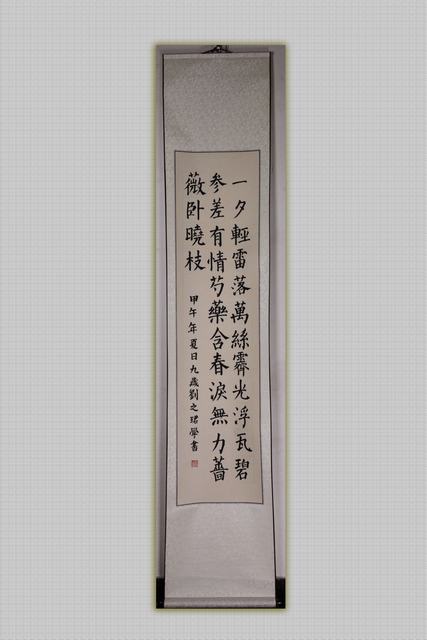 一夕輕雷落萬絲霽光浮瓦碧
參差有情芍藥含春淚無力薔
薇卧曉枝
甲午年夏日九歲劉之珺學書